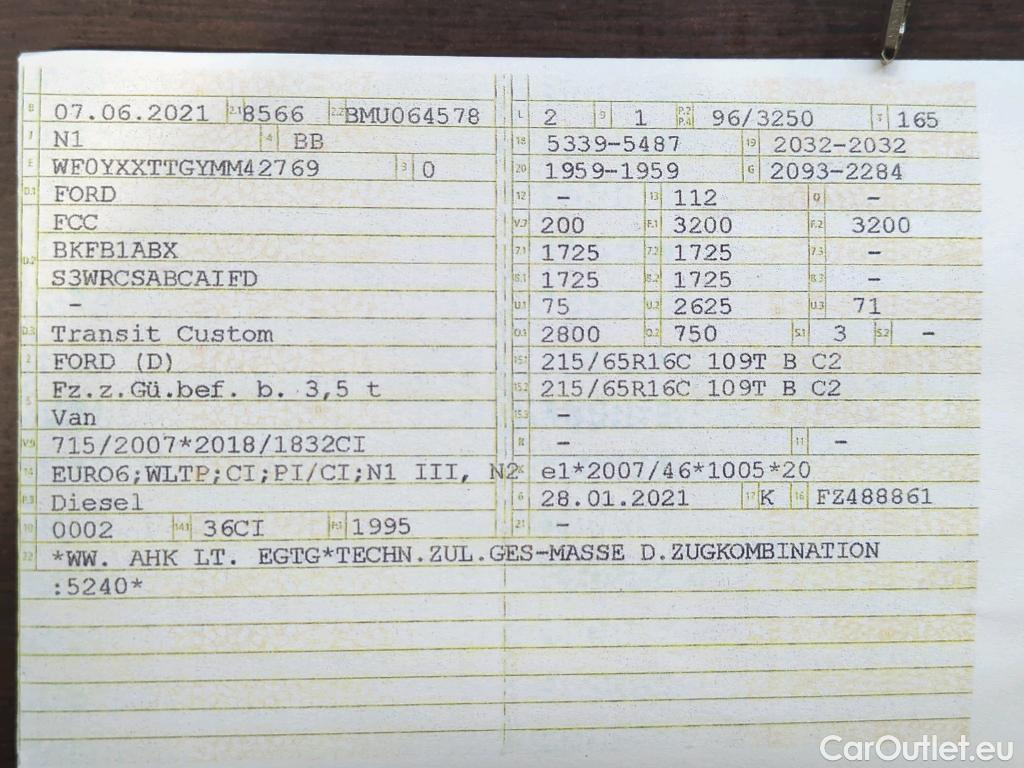 B 07.06.2021 2.1 8566 2.2 BMU064578
J N1 4 BB
E WF0YXXTTGYMM42769 3 0
D.1 FORD
FCC
D.2 BKFB1ABX
S3WRCSABCAIFD
-
D.3 Transit Custom
2 FORD (D)
5 Fz.z.Gü.bef. b. 3,5 t
Van
V.9 715/2007*2018/1832CI
14 EURO6;WLTP;CI;PI/CI;N1 III, N2
P.3 Diesel
10 0002 14.1 36CI P.1 1995
L 2 9 1 P.2 P.4 96/3250 T 165
18 5339-5487 19 2032-2032
20 1959-1959 G 2093-2284
12 - 13 112 Q -
V.7 200 F.1 3200 F.2 3200
7.1 1725 7.2 1725 7.3 -
8.1 1725 8.2 1725 8.3 -
U.1 75 U.2 2625 U.3 71
O.1 2800 O.2 750 S.1 3 S.2 -
15.1 215/65R16C 109T B C2
15.2 215/65R16C 109T B C2
15.3 -
R - 11 -
K e1*2007/46*1005*20
6 28.01.2021 17 K 16 FZ488861
21 -
22 *WW. AHK LT. EGTG*TECHN.ZUL.GES-MASSE D.ZUGKOMBINATION
:5240*
CarOutlet.eu